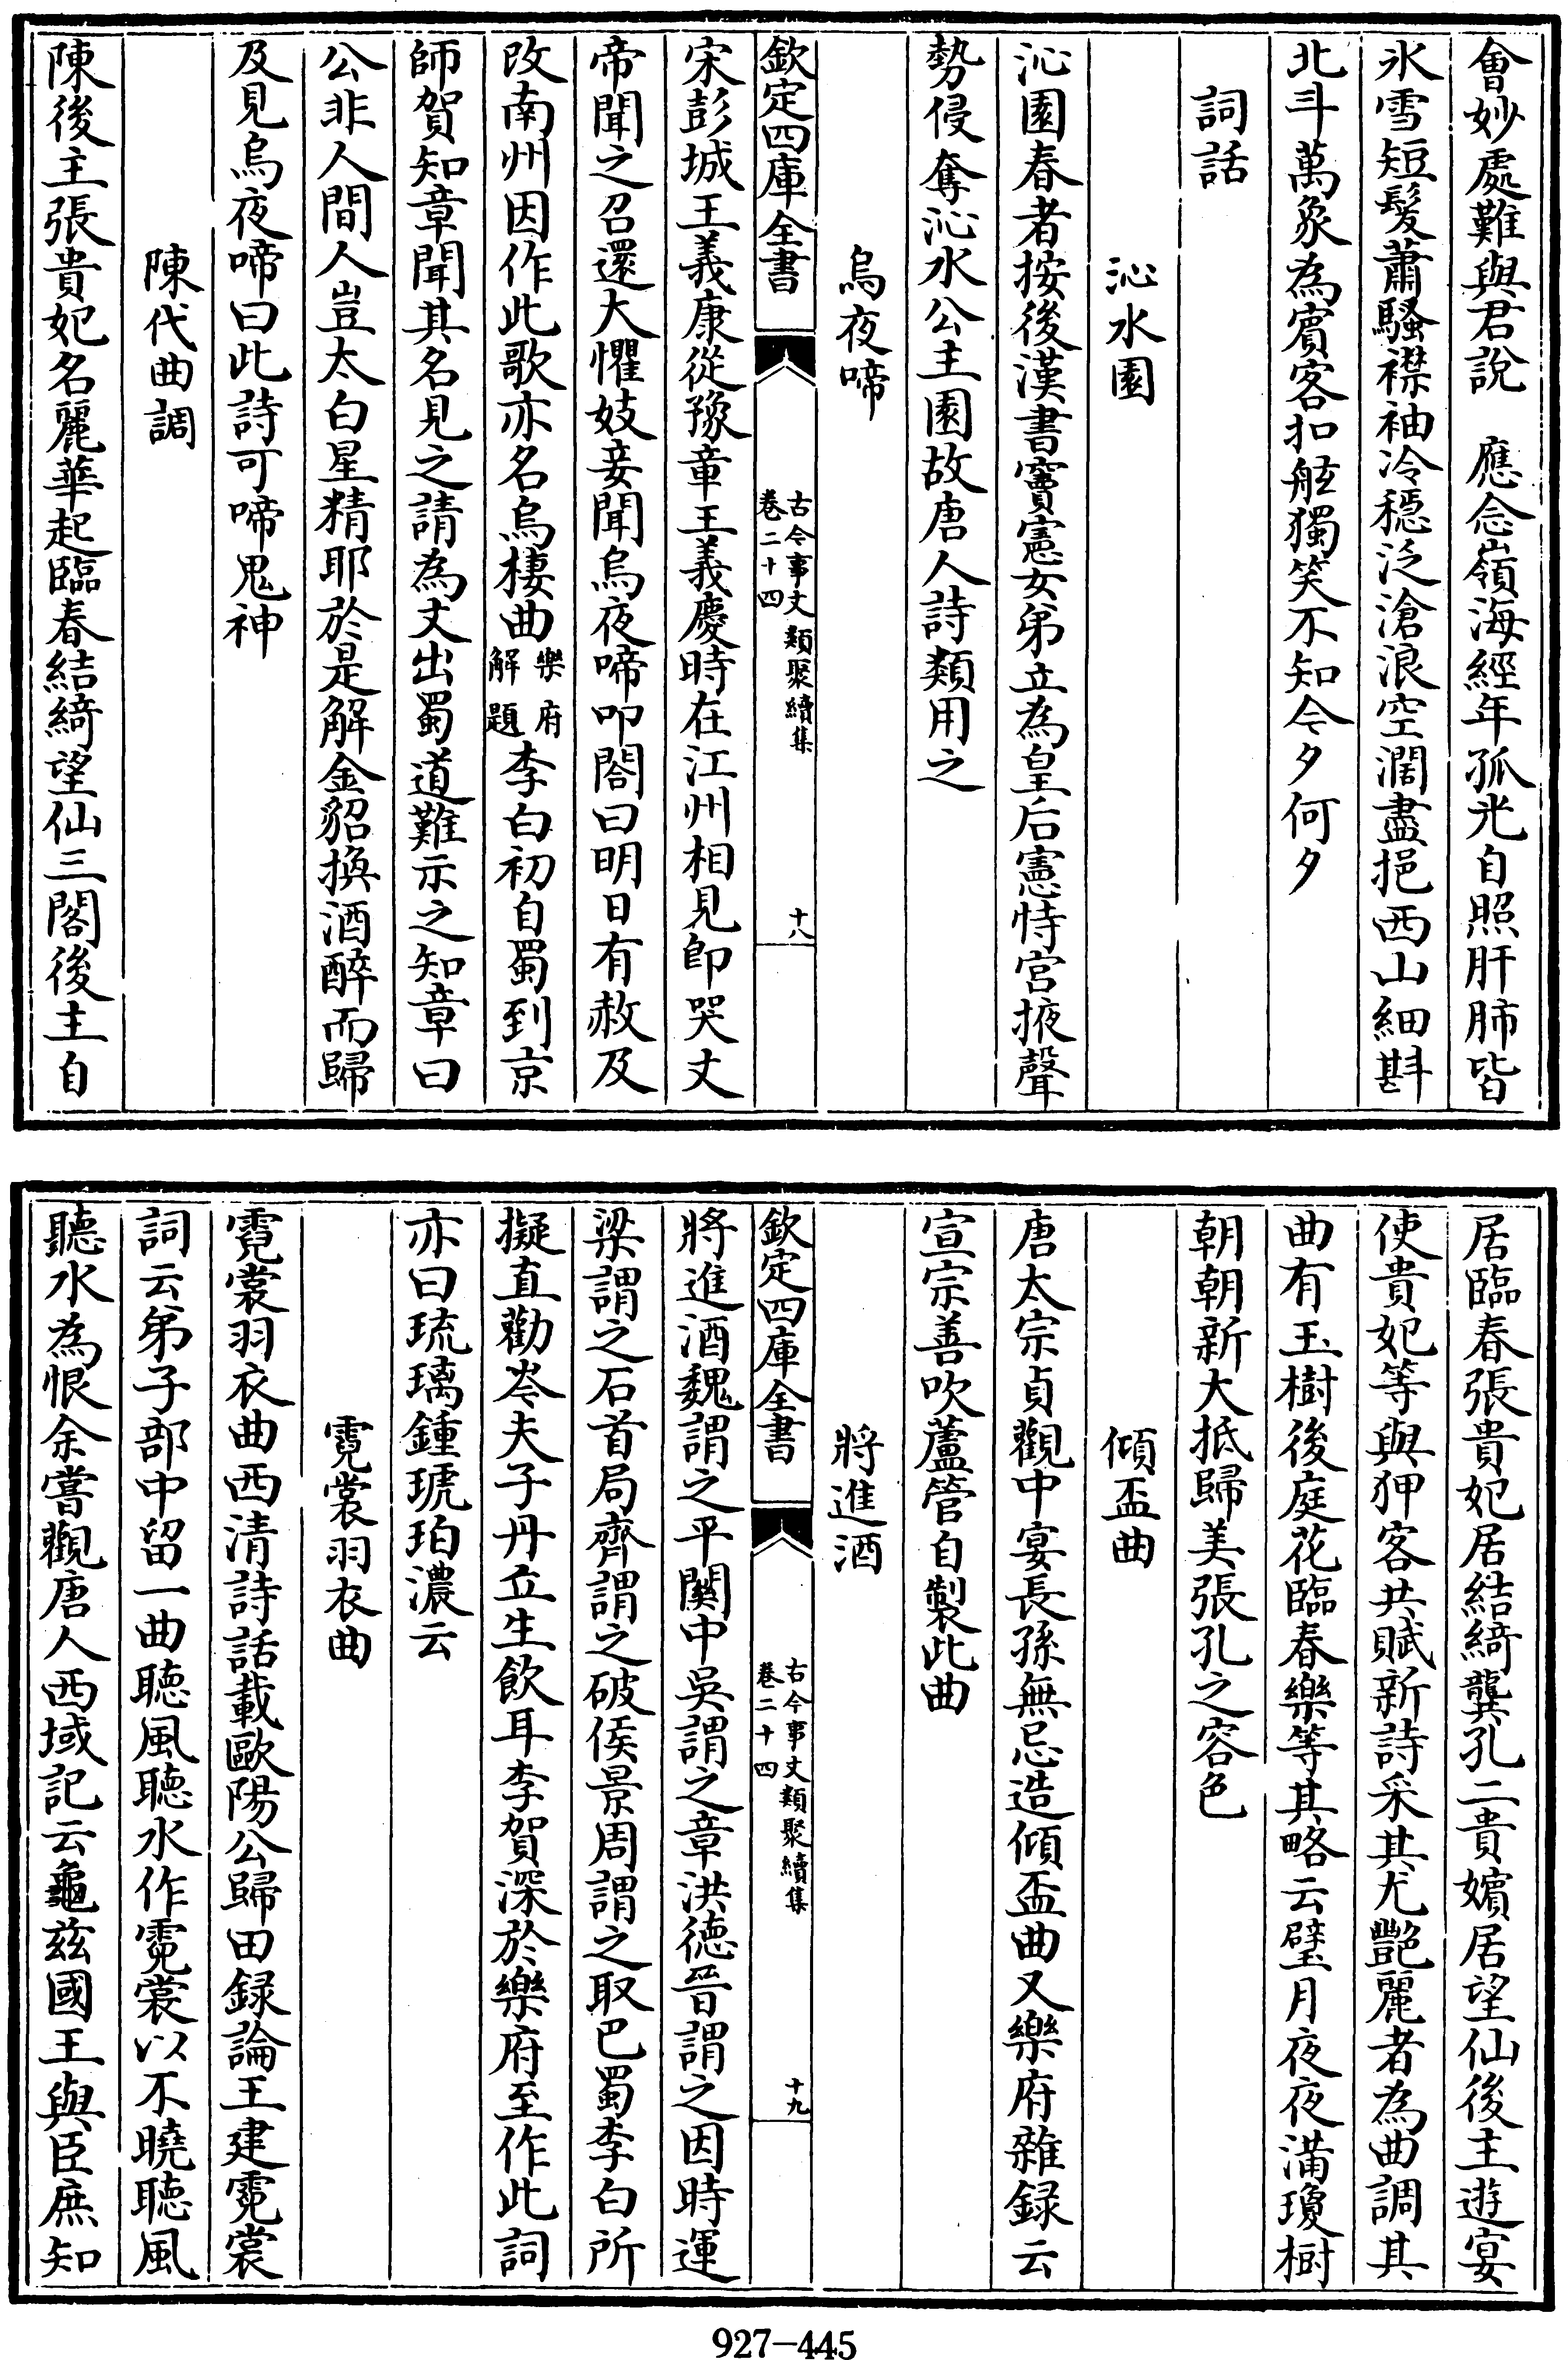 會妙處難與君說　應念嶺海經年孤光自照肝肺皆
氷雪短髮蕭騷襟袖冷穏泛滄浪空濶盡挹西山細斟
北斗萬象為賓客扣舷獨笑不知今夕何夕
詞話
沁水園
沁園春者按後漢書竇憲女弟立為皇后憲恃宫掖聲
勢侵奪沁水公主園故唐人詩類用之
烏夜啼
欽定四庫全書
古今事文類聚續集
卷二十四
十八
宋彭城王義康從豫章王義慶時在江州相見即哭文
帝聞之召還大懼妓妾聞烏夜啼叩閤曰明日有赦及
改南州因作此歌亦名烏棲曲樂府解題李白初自蜀到京
師賀知章聞其名見之請為文出蜀道難示之知章曰
公非人間人豈太白星精耶於是解金貂換酒醉而歸
及見烏夜啼曰此詩可啼鬼神
陳代曲調
陳後主張貴妃名麗華起臨春結綺望仙三閣後主自
居臨春張貴妃居結綺龔孔二貴嬪居望仙後主遊宴
使貴妃等與狎客共賦新詩采其尤艷麗者為曲調其
曲有玉樹後庭花臨春樂等其略云璧月夜夜滿瓊樹
朝朝新大抵歸美張孔之容色
傾盃曲
唐太宗貞觀中宴長孫無忌造傾盃曲又樂府雜録云
宣宗善吹蘆管自製此曲
將進酒
欽定四庫全書
古今事文類聚續集
卷二十四
十九
將進酒魏謂之平關中吳謂之章洪德晉謂之因時運
梁謂之石首局齊謂之破侯景周謂之取巴蜀李白所
擬直勸岑夫子丹丘生飲耳李賀深於樂府至作此詞
亦曰琉璃鍾琥珀濃云
霓裳羽衣曲
霓裳羽衣曲西清詩話載歐陽公歸田録論王建霓裳
詞云弟子部中留一曲聽風聽水作霓裳以不曉聽風
聽水為恨余嘗觀唐人西域記云龜兹國王與臣庶知
927-445